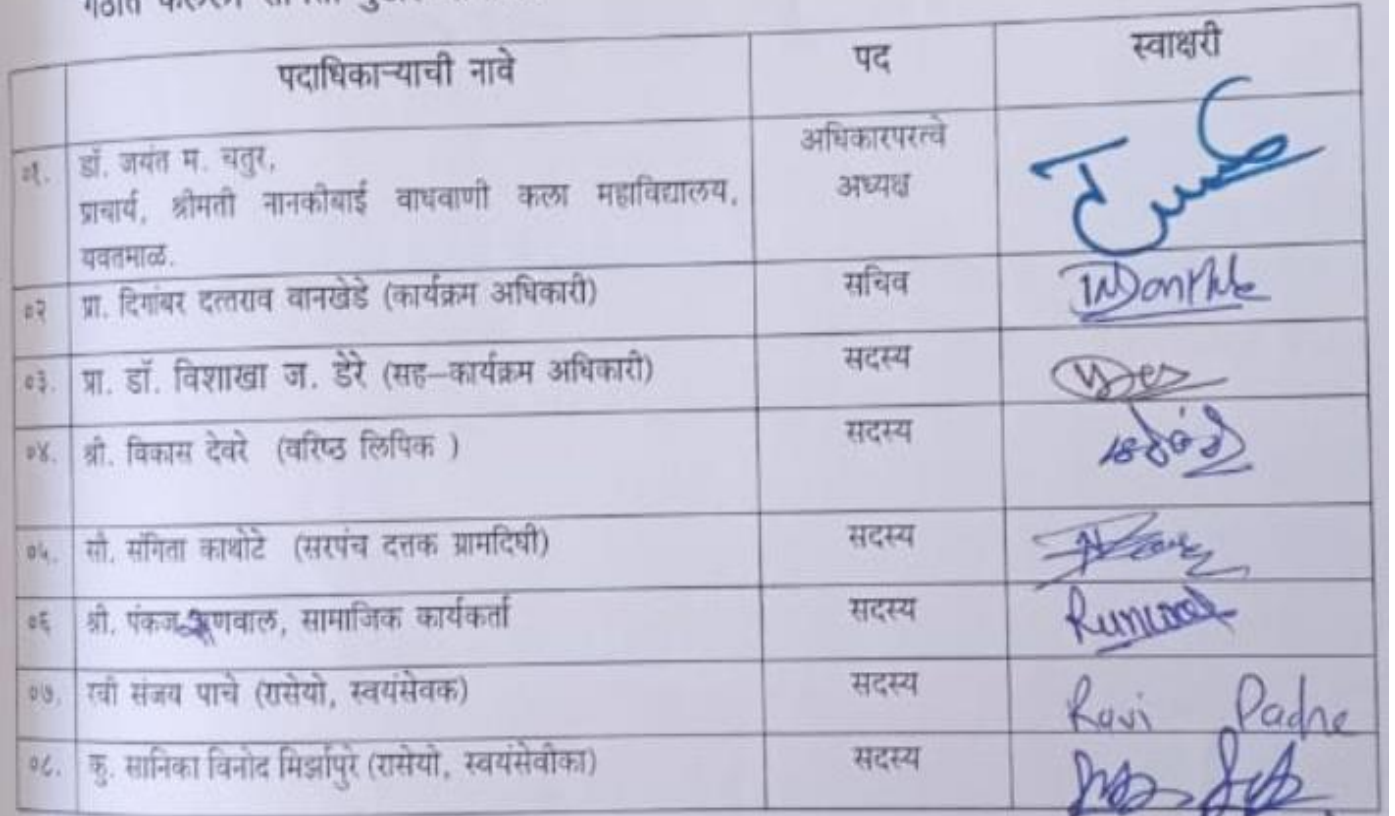 गठीत केलेली समिती
पदाधिकाऱ्याची नावे पद स्वाक्षरी
०१. डॉ. जयंत म. चतुर, अधिकारपरत्वे
प्राचार्य, श्रीमती नानकीबाई वाधवाणी कला महाविद्यालय, अध्यक्ष
यवतमाळ.
०२ प्रा. दिगांबर दत्तराव वानखेडे (कार्यक्रम अधिकारी) सचिव
०३. प्रा. डॉ. विशाखा ज. डेरे (सह–कार्यक्रम अधिकारी) सदस्य
०४. श्री. विकास देवरे (वरिष्ठ लिपिक ) सदस्य
०५. सौ. संगिता काथोटे (सरपंच दत्तक ग्रामदिघी) सदस्य
०६ श्री. पंकज रुणवाल, सामाजिक कार्यकर्ता सदस्य Runwal
०७. रवी संजय पाचे (रासेयो, स्वयंसेवक) सदस्य Ravi Pache
०८. कु. सानिका विनोद मिर्झापुरे (रासेयो, स्वयंसेवीका) सदस्य